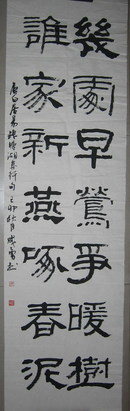 幾處早鶯爭暖樹
誰家新燕啄春泥
唐白居易錢塘湖春行句 卯秋月